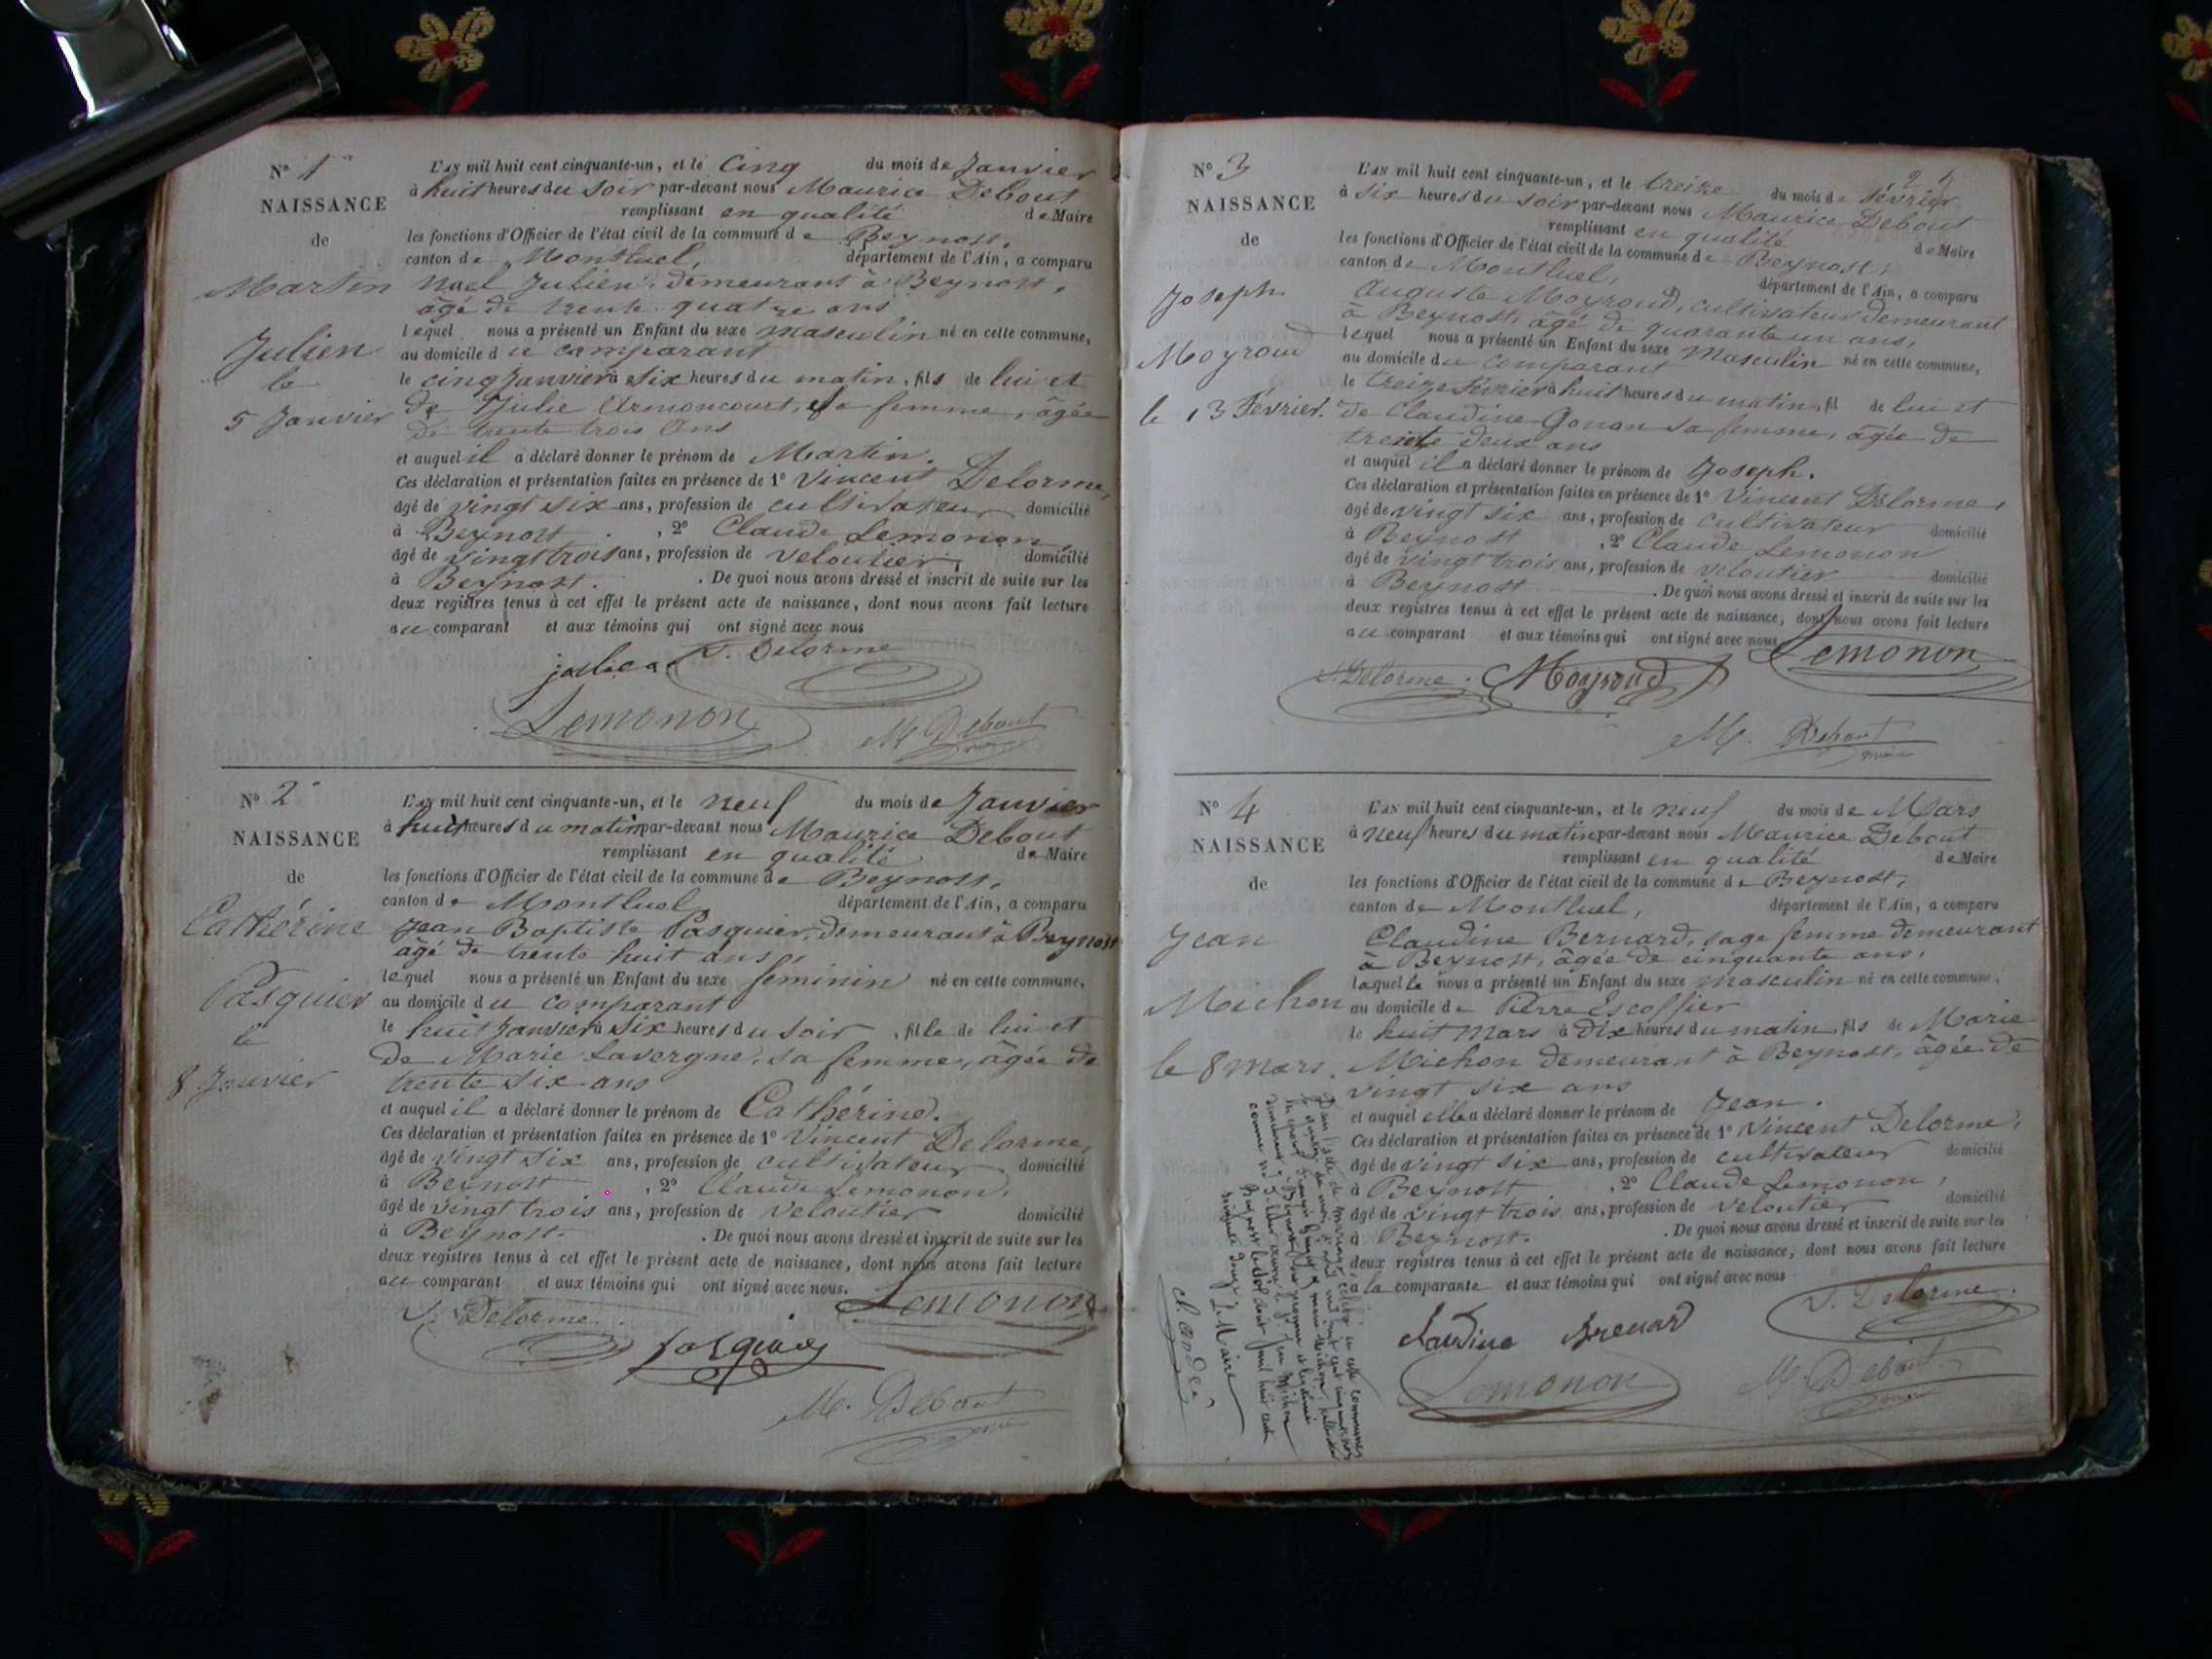 N° 1
NAISSANCE
de
Martin
Julien
le
5 Janvier
L'AN mil huit cent cinquante-un, et le cinq du mois de Janvier
à huit heures du soir par-devant nous Maurice Debout
remplissant en qualité de Maire
les fonctions d'Officier de l'état civil de la commune de Beynost,
canton de Montluel, département de l'Ain, a comparu
Noel Julien, demeurant à Beynost,
âgé de trente quatre ans
lequel nous a présenté un Enfant du sexe masculin né en cette commune,
au domicile du comparant
le cinq Janvier à six heures du matin, fils de lui et
de Julie Armoncourt, sa femme, âgée
de trente trois ans
et auquel il a déclaré donner le prénom de Martin.
Ces déclaration et présentation faites en présence de 1° Vincent Delorme,
âgé de vingt six ans, profession de cultivateur domicilié
à Beynost, 2° Claude Lemonon,
âgé de vingt trois ans, profession de veloutier, domicilié
à Beynost. De quoi nous avons dressé et inscrit de suite sur les
deux registres tenus à cet effet le présent acte de naissance, dont nous avons fait lecture
au comparant et aux témoins qui ont signé avec nous
V. Delorme
Lemonon
M. Debout
N° 2
NAISSANCE
de
Cathérine
Pasquier
le
8 Janvier
L'AN mil huit cent cinquante-un, et le neuf du mois de Janvier
à huit heures du matin par-devant nous Maurice Debout
remplissant en qualité de Maire
les fonctions d'Officier de l'état civil de la commune de Beynost,
canton de Montluel département de l'Ain, a comparu
Jean Baptiste Pasquier, demeurant à Beynost
âgé de trente huit ans,
lequel nous a présenté un Enfant du sexe féminin né en cette commune,
au domicile du comparant
le huit Janvier à six heures du soir, fille de lui et
de Marie Lavergne, sa femme, âgée de
trente six ans
et auquel il a déclaré donner le prénom de Cathérine.
Ces déclaration et présentation faites en présence de 1° Vincent Delorme,
âgé de vingt six ans, profession de cultivateur domicilié
à Beynost, 2° Claude Lemonon,
âgé de vingt trois ans, profession de veloutier domicilié
à Beynost. De quoi nous avons dressé et inscrit de suite sur les
deux registres tenus à cet effet le présent acte de naissance, dont nous avons fait lecture
au comparant et aux témoins qui ont signé avec nous.
V. Delorme
Lemonon
Pasquier
M. Debout
N° 3
NAISSANCE
de
Joseph
Moyroud
le 13 Février.
L'AN mil huit cent cinquante-un, et le treize du mois de Février
à six heures du soir par-devant nous Maurice Debout
remplissant en qualité de Maire
les fonctions d'Officier de l'état civil de la commune de Beynost,
canton de Montluel, département de l'Ain, a comparu
Auguste Moyroud, cultivateur demeurant
à Beynost, âgé de quarante un ans,
lequel nous a présenté un Enfant du sexe Masculin né en cette commune,
au domicile du comparant
le treize Février à huit heures du matin, fil de lui et
de Claudine Gonan sa femme, âgée de
trente deux ans
et auquel il a déclaré donner le prénom de Joseph.
Ces déclaration et présentation faites en présence de 1° Vincent Delorme,
âgé de vingt six ans, profession de cultivateur domicilié
à Beynost, 2° Claude Lemonon
âgé de vingt trois ans, profession de veloutier domicilié
à Beynost. De quoi nous avons dressé et inscrit de suite sur les
deux registres tenus à cet effet le présent acte de naissance, dont nous avons fait lecture
au comparant et aux témoins qui ont signé avec nous
Lemonon
V. Delorme. Moyroud
M. Debout
maire
N° 4
NAISSANCE
de
Jean
Michon
le 8 mars.
L'AN mil huit cent cinquante-un, et le neuf du mois de Mars
à neuf heures du matin par-devant nous Maurice Debout
remplissant en qualité de Maire
les fonctions d'Officier de l'état civil de la commune de Beynost,
canton de Montluel, département de l'Ain, a comparu
Claudine Bernard, sage femme demeurant
à Beynost, âgée de cinquante ans,
laquelle nous a présenté un Enfant du sexe masculin né en cette commune,
au domicile de Pierre Escoffier
le huit Mars à dix heures du matin, fils de Marie
Michon demeurant à Beynost, âgée de
vingt six ans
et auquel elle a déclaré donner le prénom de Jean.
Ces déclaration et présentation faites en présence de 1° Vincent Delorme,
âgé de vingt six ans, profession de cultivateur domicilié
à Beynost, 2° Claude Lemonon,
âgé de vingt trois ans, profession de veloutier domicilié
à Beynost. De quoi nous avons dressé et inscrit de suite sur les
deux registres tenus à cet effet le présent acte de naissance, dont nous avons fait lecture
à la comparante et aux témoins qui ont signé avec nous
V. Delorme.
Claudine
Lemonon
M. Debout
Le Maire